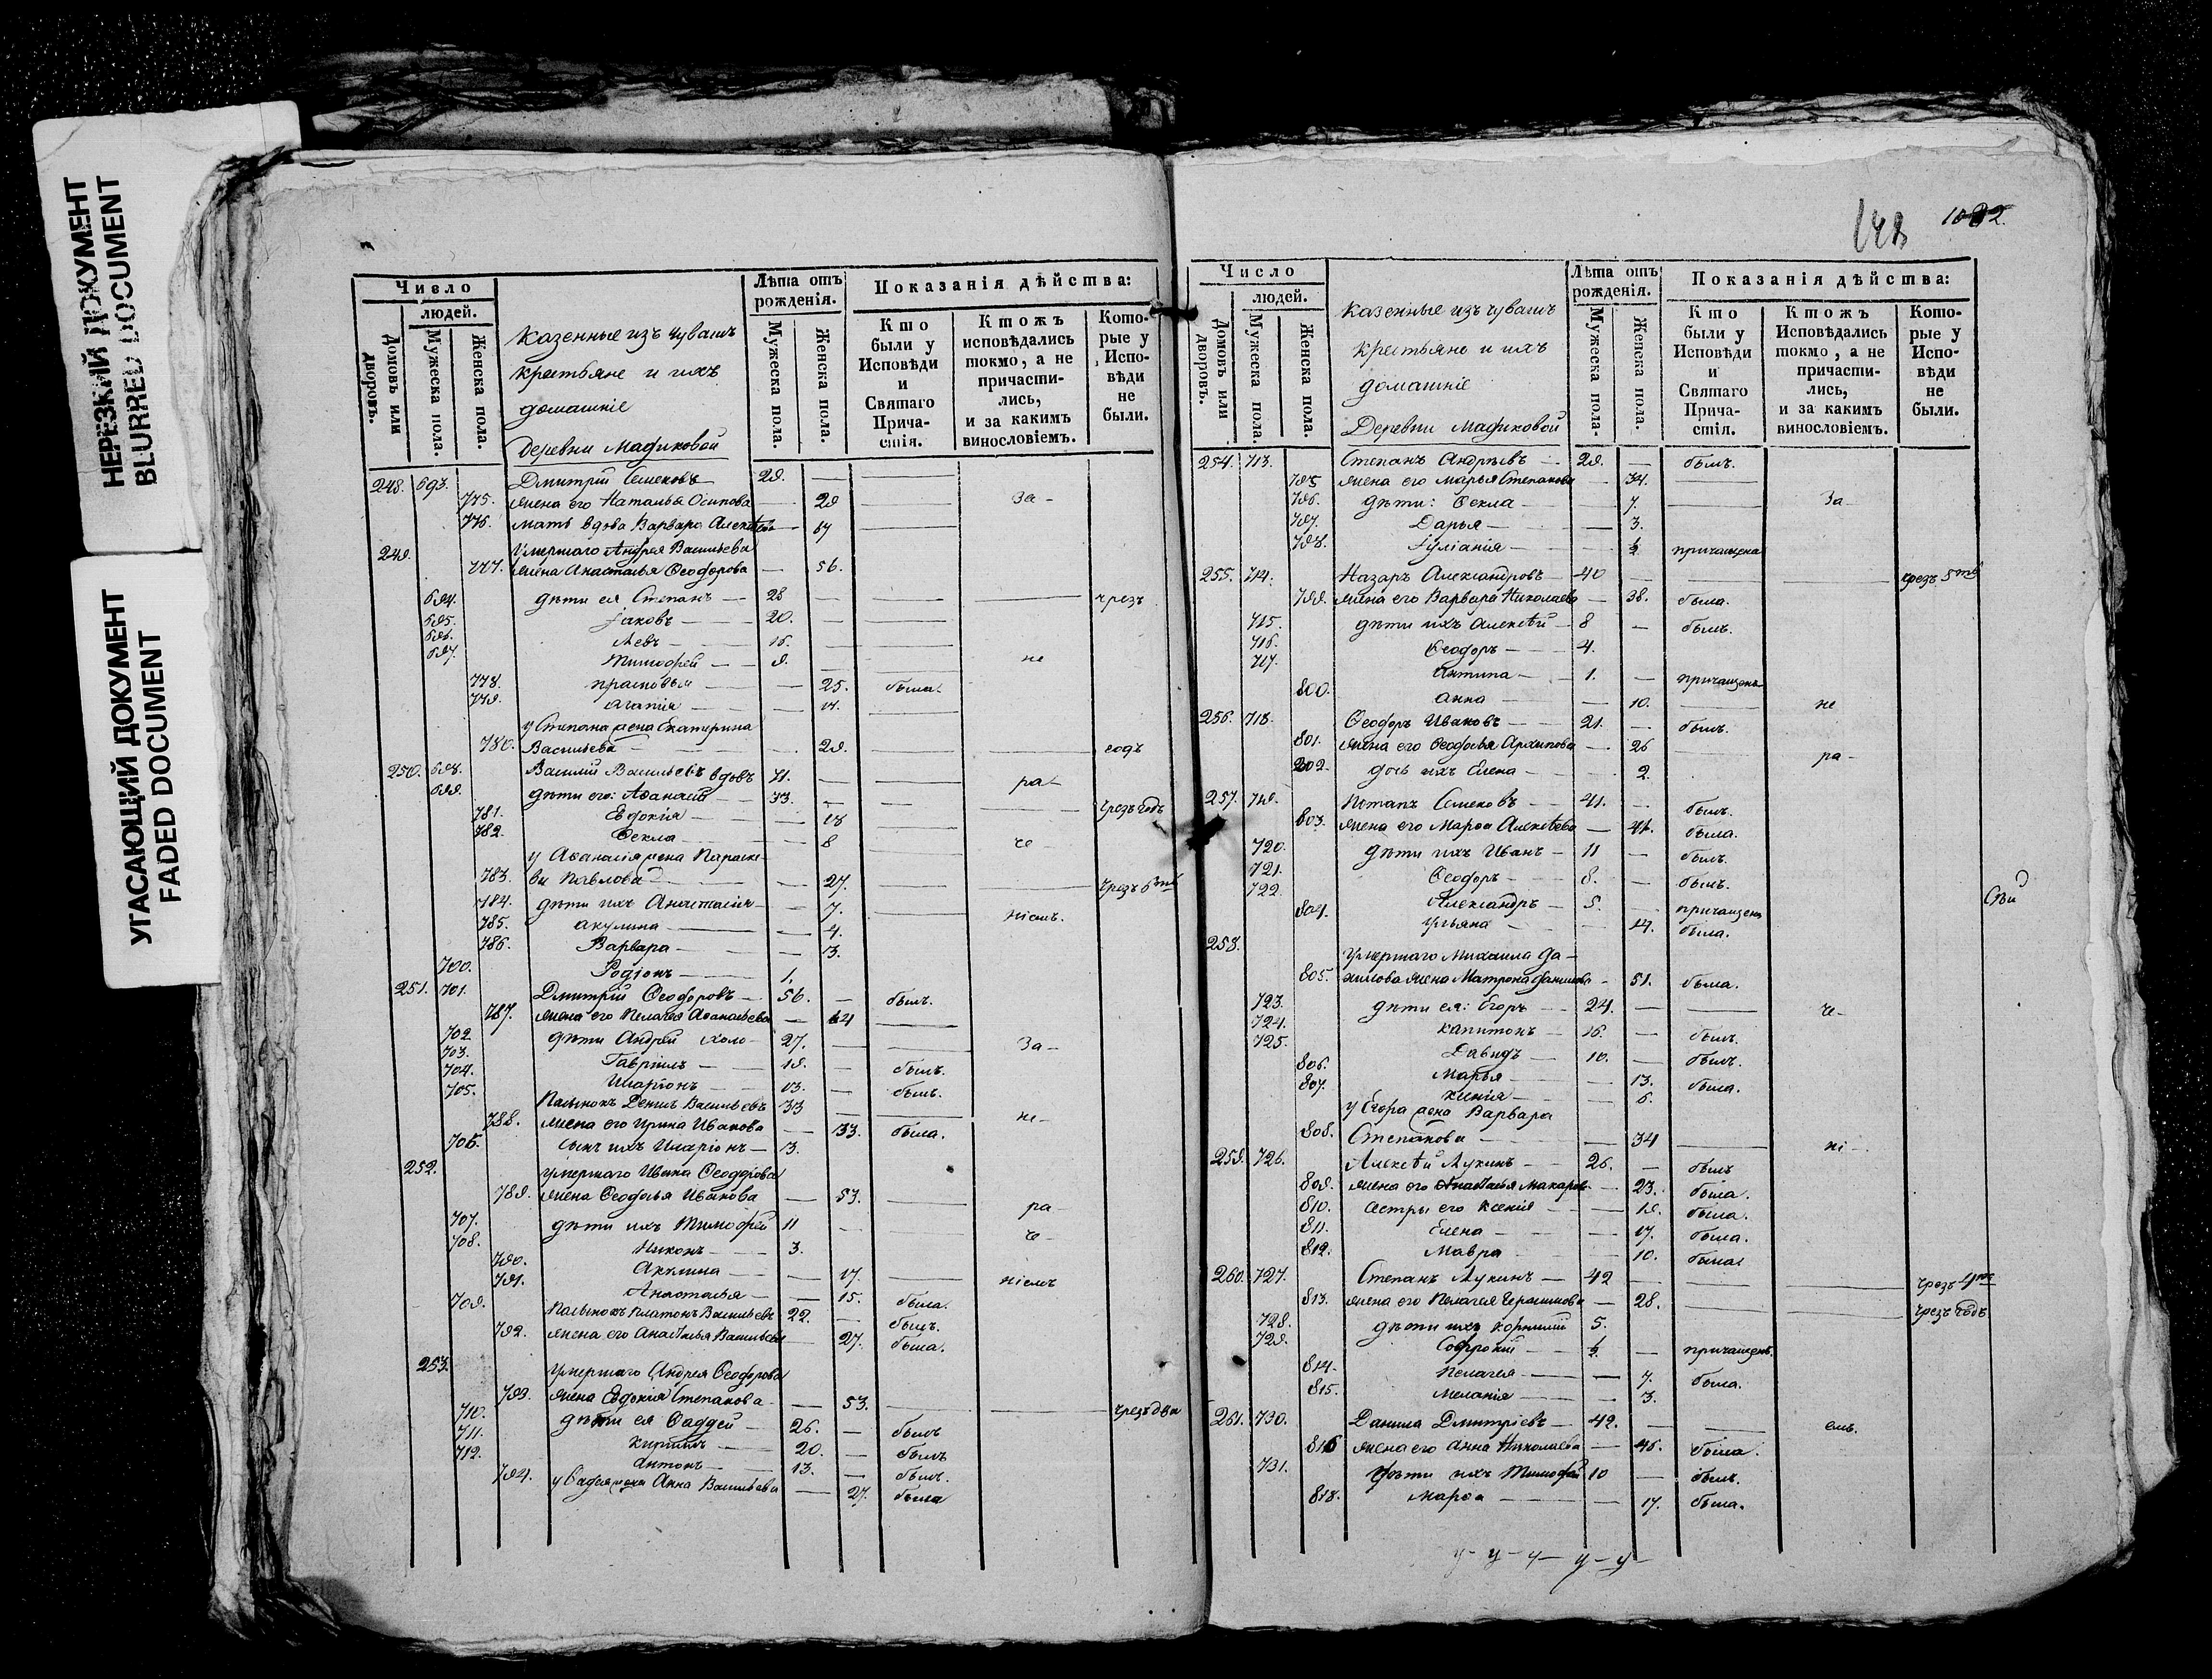 НЕРЕЗКИЙ ДОКУМЕНТ
BLURRED DOCUMENT
УГАСАЮЩИЙ ДОКУМЕНТ
FADED DOCUMENT
Число
людей.
Домовъ или дворовъ.
Мужеска пола.
Женска пола.
Казенные изъ чувашъ
крестьяне и ихъ
домашніе
Деревни
Лѣта отъ рожденія.
Мужеска пола.
Женска пола.
Показанія дѣйства:
Кто были у Исповѣди и Святаго Причастія.
Ктожъ исповѣдались токмо, а не причастились, и за какимъ винословіемъ.
Которые у Исповѣди не были.
248. 693. Дмитрій Семеновъ 29. —
775. жена его Наталья Осипова — 29 За-
776. мать вдова Варвара Алексѣева — 67
249. Умершаго Андрея Васильева
777. жена Анастасья Ѳеодорова — 56.
694. дѣти ея Степанъ — 28 — чрезъ
695. Іаковъ — 20. —
696. Левъ — 16. —
697. Тимофей — 9. — не
778. Прасковья — — 25. была.
779. Агапія — — 14.
у Степана жена Екатерина
780. Васильева — — 29. годъ
250. 698. Василій Васильевъ вдовъ 71. — ра-
699. дѣти его: Аѳанасій — 33. — чрезъ годъ
781. Евдокія — — 18
782. Ѳекла — — 8 че-
у Аѳанасія жена Параске-
783. ви Павлова — — 27. чрезъ
784. дѣти ихъ Анастасія — — 7. ніемъ.
785. Акулина — — 4.
786. Варвара — — 13.
700. Родіонъ — 1.
251. 701. Дмитрій Ѳеодоровъ — 56. — былъ.
787. жена его Пелагея Аѳанасьева —
702. дѣти Андрей холо- 27. — За-
703. Гавріилъ — 19. — былъ.
704. Иларіонъ — 13. — былъ.
705. Денисъ Васильевъ 33 — не-
788. жена его Ирина Иванова — 33. была.
706. сынъ ихъ Иларіонъ — 13.
252. умершаго Ивана Ѳеодорова
789. жена Ѳеодосья Иванова — 53. ра-
707. дѣти ихъ Тимофей 11 — че-
708. Никонъ — 3.
790. Акулина — — 17. ніемъ
791. Анастасья — — 15. была.
709. Платонъ Васильевъ 22. — былъ.
792. жена его Анастасья Васильева — 27. была.
253. умершаго Андрея Ѳеодорова
793. жена Евдокія Степанова — 53. чрезъ два
710. дѣти ея Ѳаддей — 26. — былъ
711. Кириллъ — 20. — былъ
712. Антонъ — 13. — былъ.
794. у Ѳадея жена Анна Васильева — 27. была
148 1082.
Число
людей.
Домовъ или дворовъ.
Мужеска пола.
Женска пола.
Казенные изъ чувашъ
крестьяне и ихъ
домашніе
Деревни
Лѣта отъ рожденія.
Мужеска пола.
Женска пола.
Показанія дѣйства:
Кто были у Исповѣди и Святаго Причастія.
Ктожъ Исповѣдались токмо, а не причастились, и за какимъ винословіемъ.
Которые у Исповѣди не были.
254. 713. Степанъ Андреевъ — 29. — былъ.
795 жена его Марья Степанова — 34.
796. дѣти: Ѳекла — — 7. За-
797. Дарья — — 3.
798. Іуліанія — — ½ причащена
255. 714. Назаръ Александровъ — 40 — чрезъ
799. жена его Варвара Николаева — 38. была.
715. дѣти ихъ Алексѣй — 8 — былъ.
716. Ѳеодоръ — 4.
717. Антипа — 1. — причащенъ
800. Анна — — 10. не
256. 718. Ѳеодоръ Ивановъ — 21. — былъ.
801. жена его Ѳеодосья Архипова — 26 ра-
802. дочь ихъ Елена — — 2.
257. 719. Потапъ Семеновъ — 41. — былъ.
803. жена его Марѳа Алексѣева — 41. была.
720. дѣти ихъ Иванъ — 11 — былъ.
721. Ѳеодоръ — 8. — былъ.
722. Александръ — 5. — причащенъ
804. Ульяна — — 14. была.
258. Умершаго Михаила Да-
805. нилова жена Матрона — 51. была.
723. дѣти ея: Егоръ — 24. — че-
724. Капитонъ — 16. — былъ.
725. Давидъ — 10. — былъ.
806. Марья — — 13. была.
807. Ксенія — — 6.
у Егора жена Варвара
808. Степанова — — 34 ні-
259. 726. Алексѣй Лукинъ — 26. — былъ
809. жена его Анастасья Макарова — 23. была.
810. сестры его Ксенія — — 19. была.
811. Елена — — 17. была.
812. Мавра — — 10. была.
260. 727. Степанъ Лукинъ — 42 — чрезъ
813. жена его Пелагея Герасимова — 28. чрезъ годъ
728. дѣти ихъ Корнилій 5.
729. Софроній — ½ — причащенъ.
814. Пелагея — — 7. была.
815. Меланія — — 3.
261. 730. Данила Дмитріевъ — 42. — емъ.
816 жена его Анна Николаева — 46. была.
731. дѣти ихъ Тимофей 10 — былъ.
818. Марѳа — — 17. была.